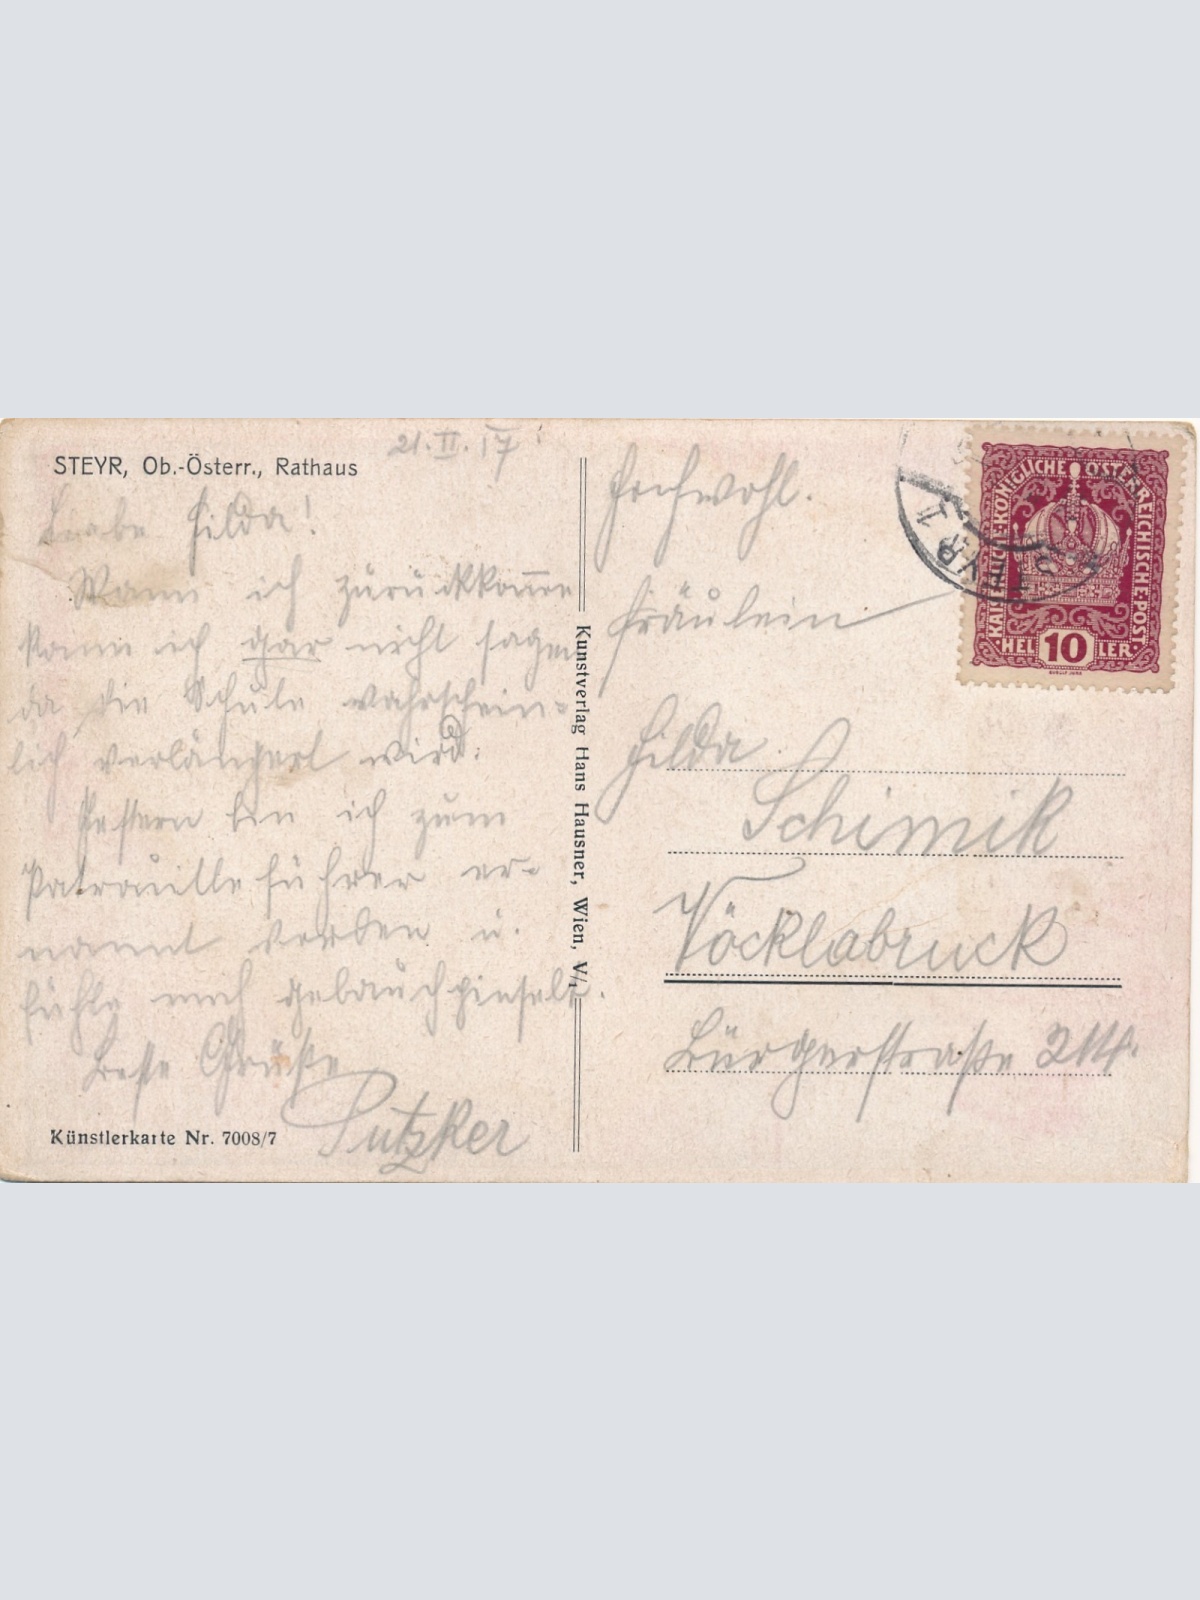 STEYR, Ob.-Österr., Rathaus
21.II.17
Liebe Hilda!
Wann ich zurückkom̅e
kann ich gar nicht sagen
da die Schule wahrschein-
lich verlängert wird.
Gestern bin ich zum
Patrouilleführer er-
nannt worden u.
fühle mich gebauchpinselt.
Beste Grüße
Putzker
Künstlerkarte Nr. 7008/7
Kunstverlag Hans Hausner, Wien, V/1
Hochwohl.
Fräulein
Hilda
Schimik
Vöcklabruck
Bürgerstraße
KAISERLICHE·KÖNIGLICHE ÖSTERREICHISCHE·POST
10
HELLER
STEYR 1